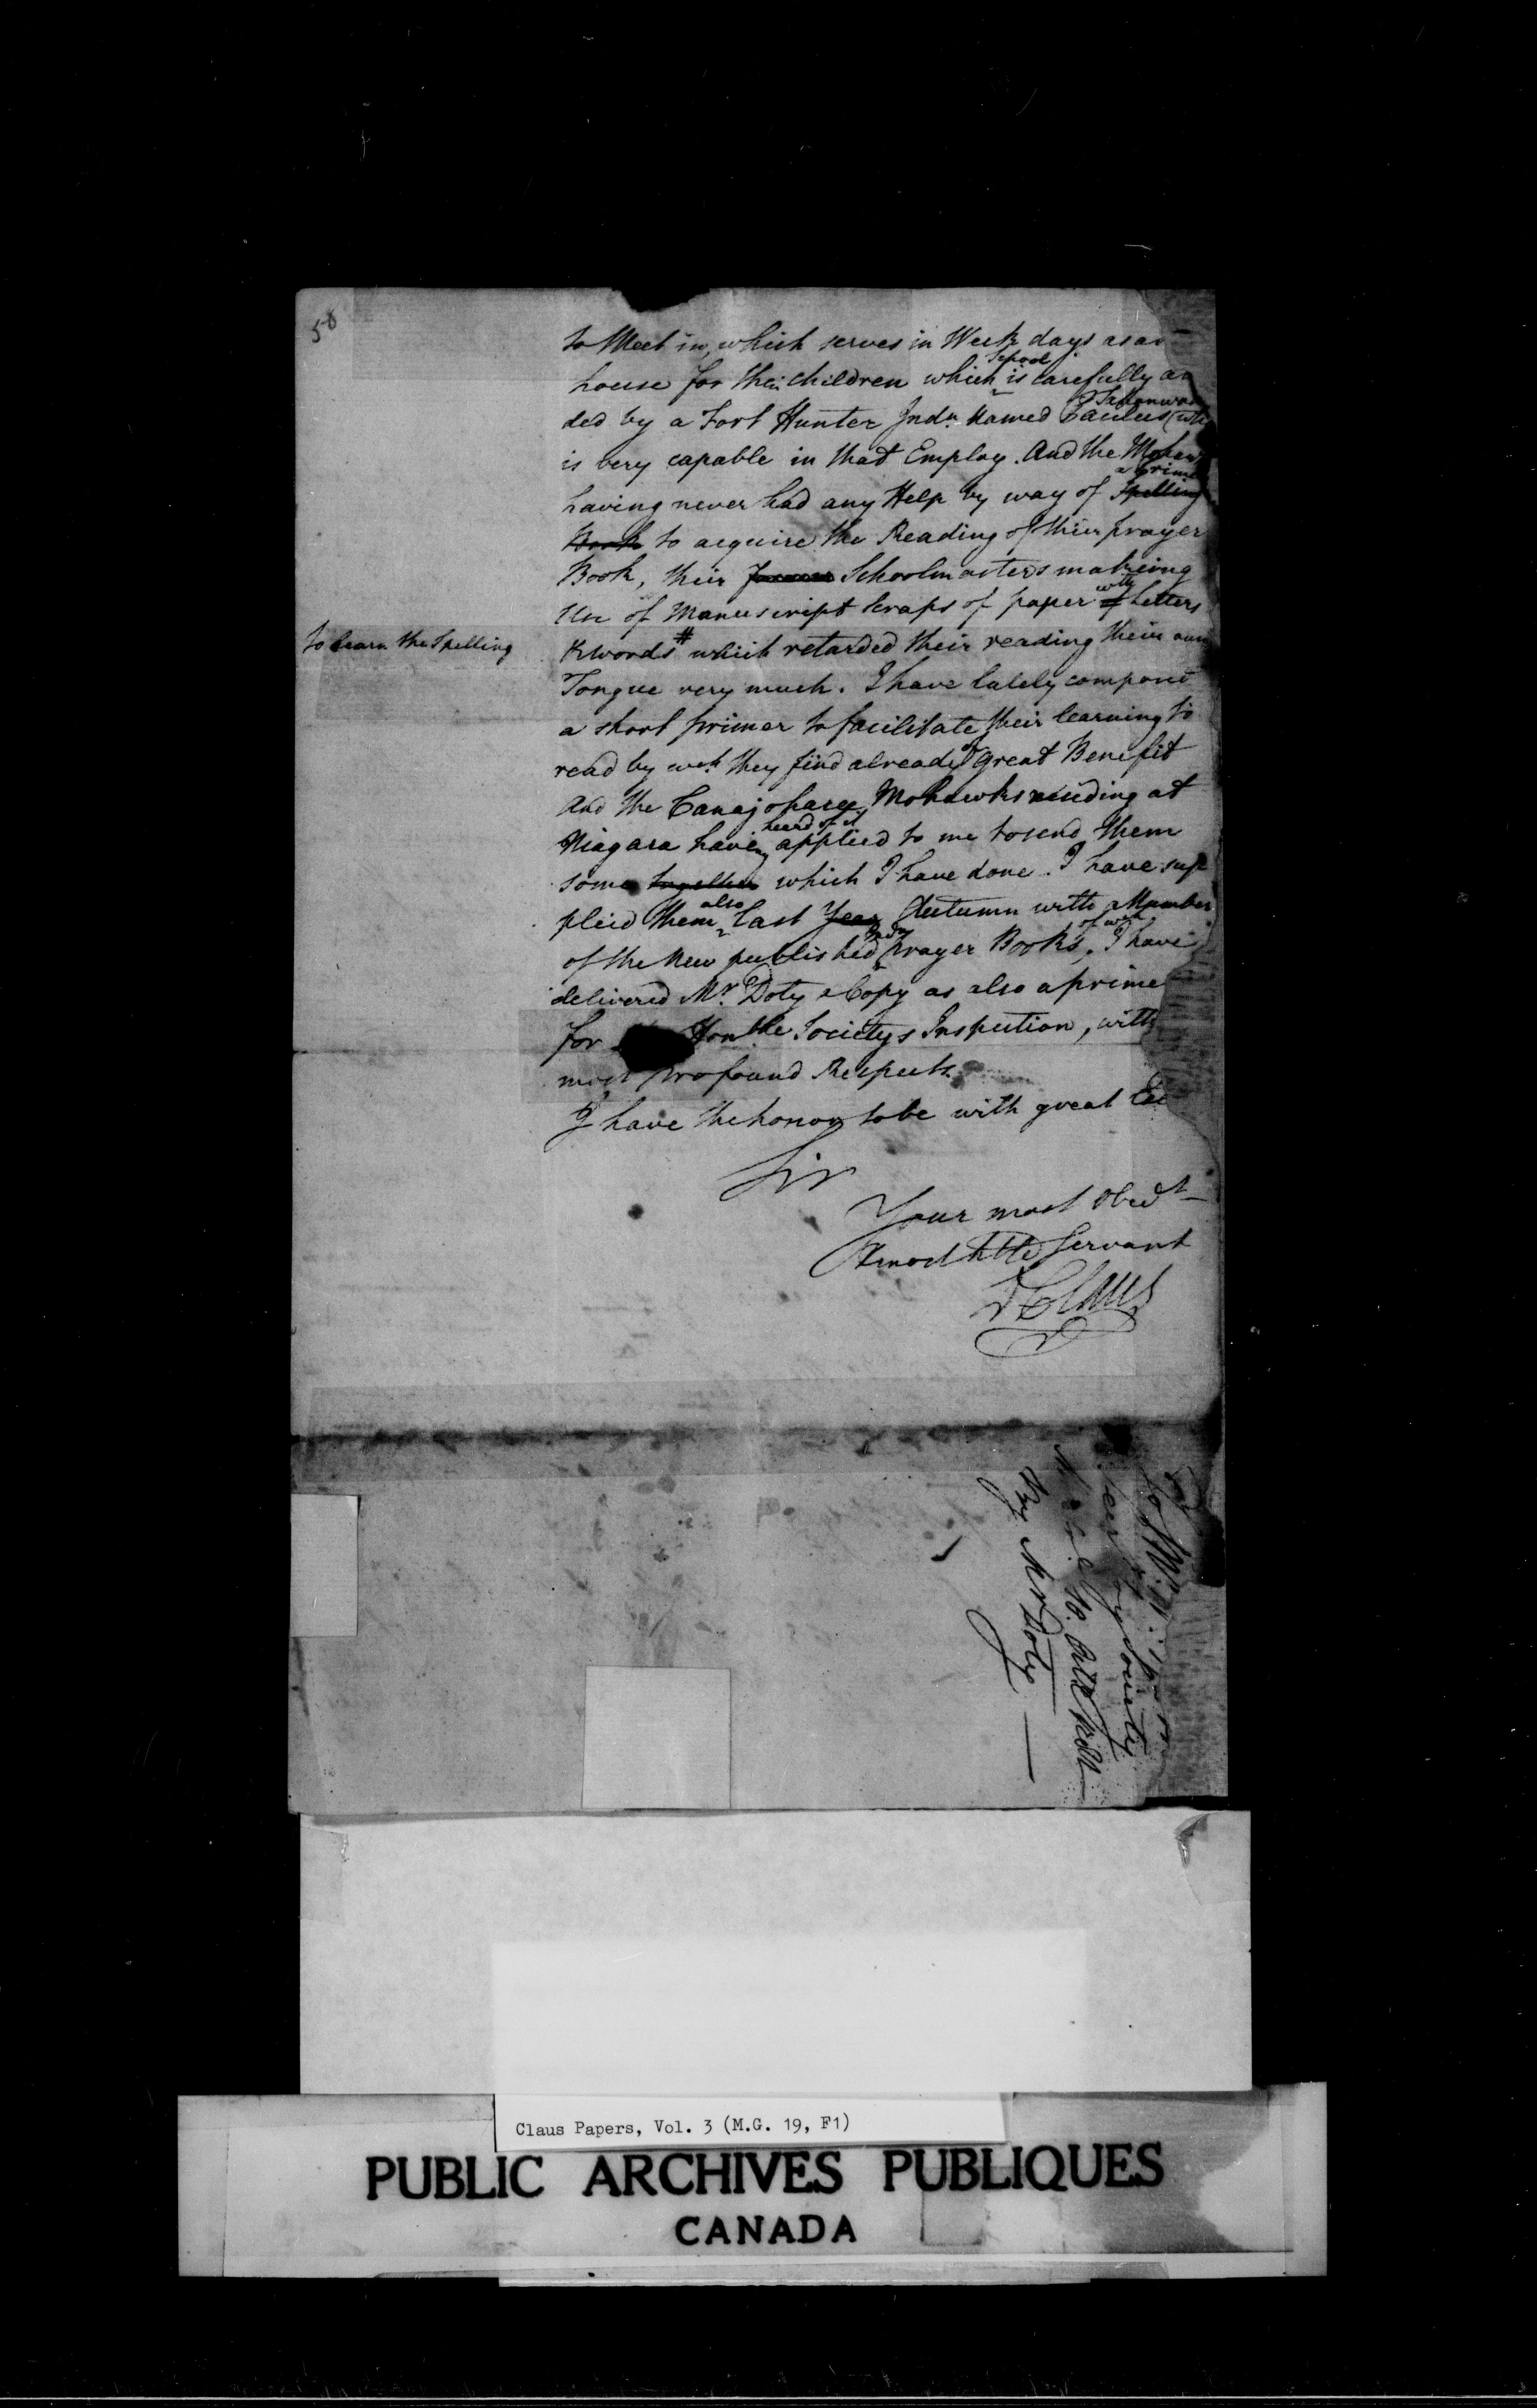 58
to Meet in, which serves in Week days as a
house for their children which School is carefully a
ded by a Fort Hunter Indn. Named Paulus (who
is very capable in that Employ. And the Mohawk
having never had any Help by way of a primer Spelling
Book to acquire the Reading of their prayer
Book, their former Schoolmasters makeing
Use of Manuscript Scraps of paper with of Letters
& words # which retarded their reading their own
to learn the Spelling
Tongue very much. I have lately composed
a short primer to facilitate their learning to
read by wch. they find already of great Benefit
And the Canajoharee Mohawks residing at
Niagara having heard of it applied to me to send them
some together which I have done. I have sup
plied them also last Year Autumn with a Number
of the new published Indn prayer Books, of wch I have
delivered Mr. Doty a Copy as also a prime
for Honble Societys Inspection, with
most profound Respects.
I have the honor to be with great
Sir
Your most Obedt
& most Hble Servant
D Claus
To
Secry to ye Society
By Mr Doty
Claus Papers, Vol. 3 (M.G. 19, F1)
PUBLIC ARCHIVES PUBLIQUES
CANADA